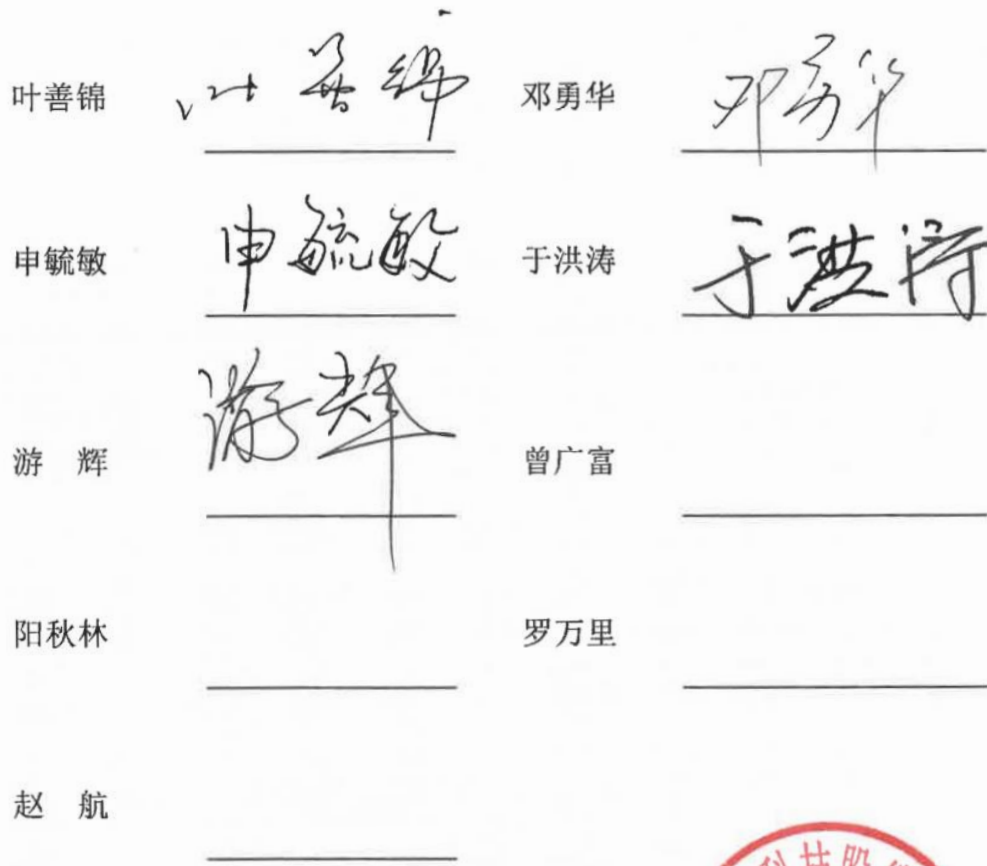 叶善锦 叶善锦 邓勇华 邓勇华
申毓敏 申毓敏 于洪涛 于洪涛
游 辉 游辉 曾广富
阳秋林 罗万里
赵 航
科技股